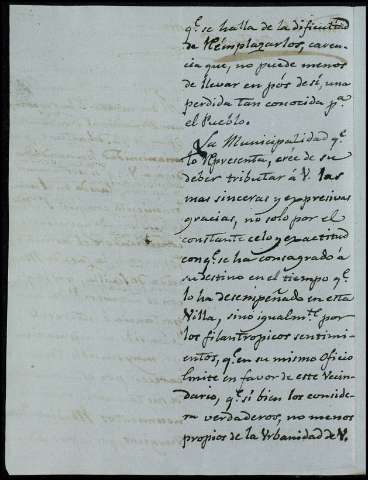 q.e se halla de la dificultad
de Reimplazarlos, caren-
cia que, no puede menos
de llevar en pós de sí, una
perdida tan conocida p.a
el Pueblo.
La Municipalidad q.e
lo Representa, cree de su
deber tributar á V. las
mas sinceras y expresivas
gracias, no solo por el
constante celo y exactitud
con q.e se ha consagrado á
su destino en el tiempo q.e
lo ha desempeñado en esta
Villa, sino igualm.te por
los filantropicos sentimi-
entos, q.e en su mismo Oficio
emite en favor de este Vecin-
dario, q.e si bien los conside-
ra verdaderos, no menos
propios de la Urbanidad de V.